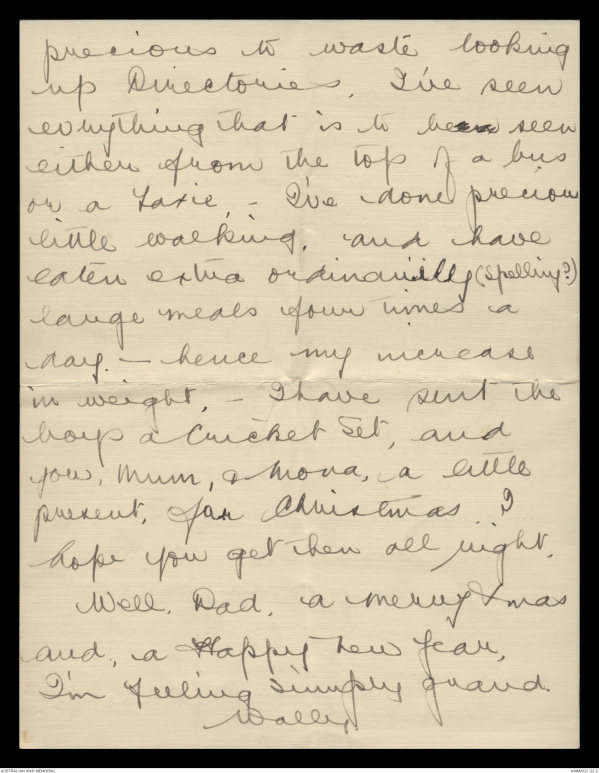 precious to waste looking
up Directories. I've seen
everything that is to be seen
either from the top of a bus
or a Taxie, - I've done precious
little walking, and have
eaten extra ordinarily (Spelling?)
large meals four times a
day. - hence my increase
in weight, - I have sent the
boys a Cricket Set, and
you, Mum, & Mona, a little
present, for Christmas I
hope you get them all right.
Well, Dad, a merry Xmas
and, a Happy New Year,
I'm feeling simply grand.
Wally,
AUSTRALIAN WAR MEMORIAL